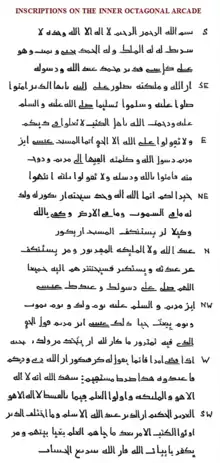 INSCRIPTIONS ON THE INNER OCTAGONAL ARCADE
بسم الله الرحمن الرحيم لا اله الا الله وحده لا S
شريك له له الملك وله الحمد يحيى ويميت وهو
على كل شى قدير محمد عبد الله ورسوله
ان الله وملئكته يصلون على النبى يايها الذين امنوا SE
صلوا عليه وسلموا تسليما صلى الله عليه والسلم
عليه ورحمت الله ياهل الكتب لا تغلوا فى دينكم
ولا تقولوا على الله الا الحق انما المسيح عيسى ابن E
مريم رسول الله وكلمته القيها الى مريم وروح
منه فامنوا بالله ورسله ولا تقولوا ثلثة انتهوا
خيرا لكم انما الله اله وحد سبحنه ان يكون له ولد NE
له ما فى السموت وما فى الارض وكفى بالله
وكيلا لن يستنكف المسيح ان يكون
عبد الله ولا الملئكه المقربون ومن يستنكف N
عن عبدته ويستكبر فسيحشرهم اليه جميعا
اللهم صلى على رسولك وعبدك عيسى
ابن مريم والسلم عليه يوم ولد ويوم يموت NW
ويوم يبعث حيا ذلك عيسى ابن مريم قول الحق
الذى فيه تمترون ما كان لله ان يتخذ من ولد سبحنه
اذا قضى امرا فانما يقول له كن فيكون ان الله ربى وربكم W
فاعبدوه هذا صرط مستقيم شهد الله انه لا اله
الا هو والملئكه واولوا العلم قيما بالقسط لا اله الا هو
العزيز الحكيم ان الدين عند الله الاسلم وما اختلف الذين SW
اوتوا الكتب الا من بعد ما جاهم العلم بغيا بينهم ومن
يكفر بايت الله فان الله سريع الحساب